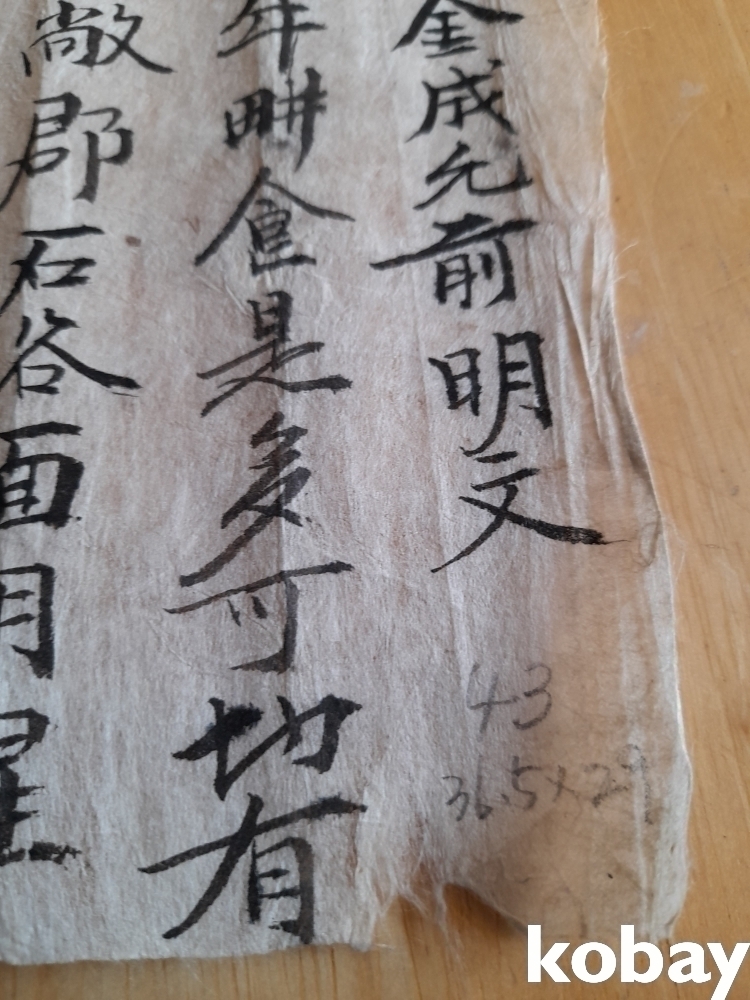 金成允前明文
年畊食是多可切有
敞郡石谷面月星
43
36.5x29
kobay